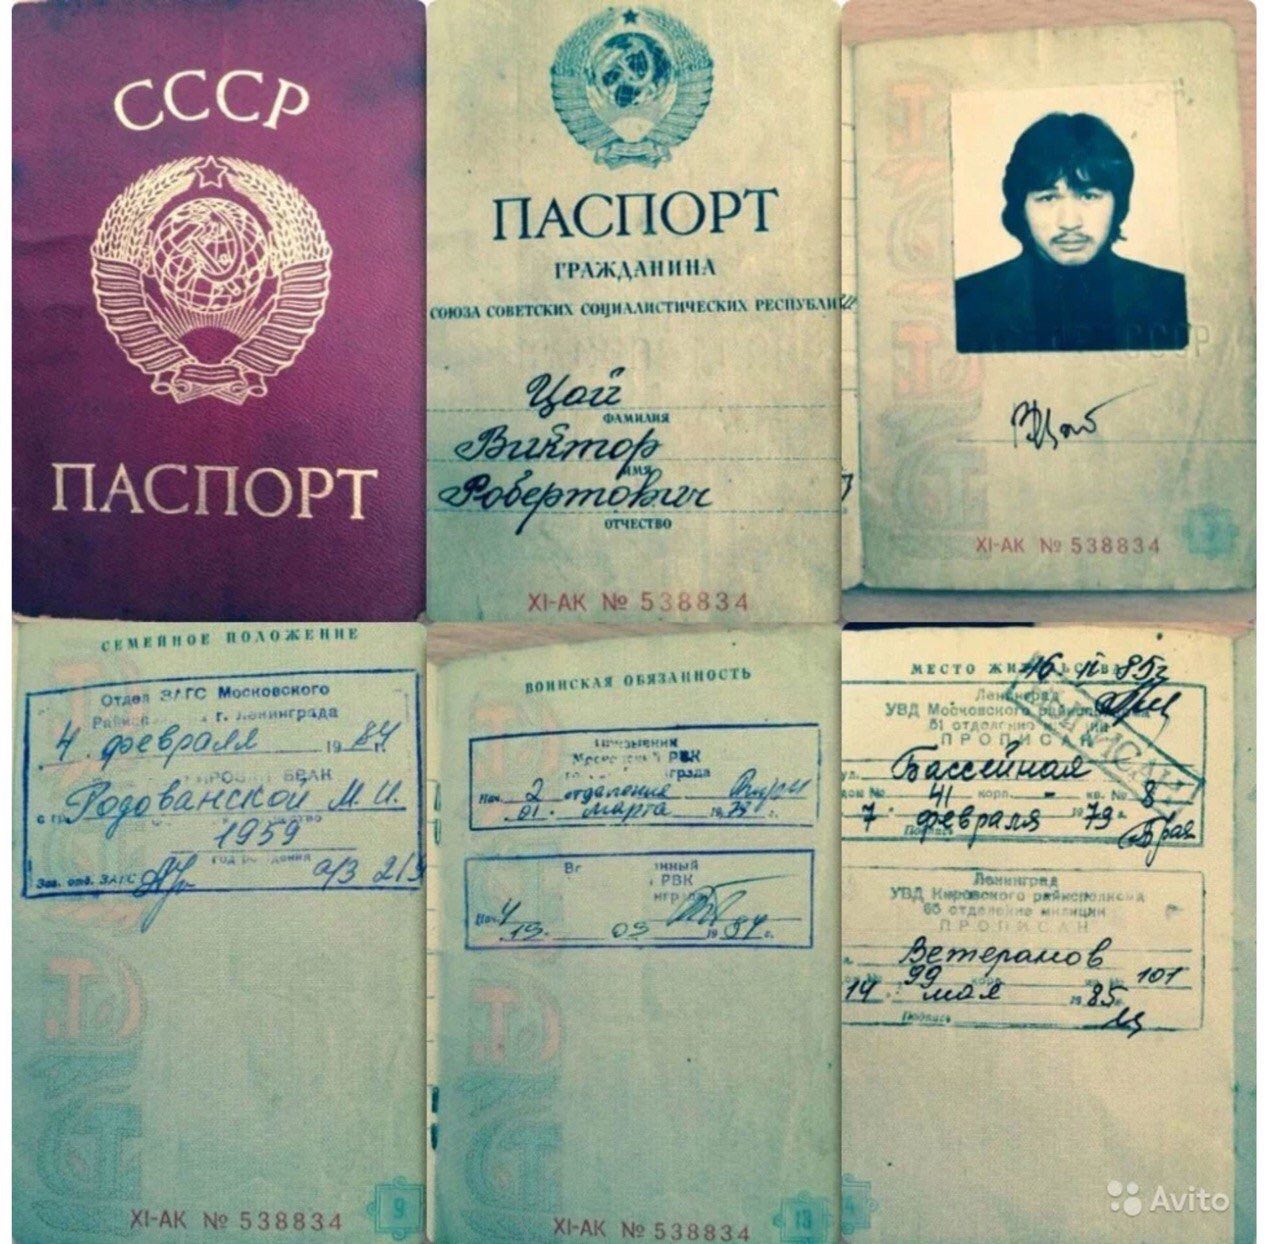 СССР
ПАСПОРТ
ПАСПОРТ
ГРАЖДАНИНА
СОЮЗА СОВЕТСКИХ СОЦИАЛИСТИЧЕСКИХ РЕСПУБЛИК
Цой
ФАМИЛИЯ
Виктор
ИМЯ
Робертович
ОТЧЕСТВО
XI-АК № 538834
СССР
XI-АК № 538834
СЕМЕЙНОЕ ПОЛОЖЕНИЕ
Отдел ЗАГС Московского
г. Ленинграда
4 февраля 1984 г.
БРАК
с гр. Родованской М. И.
1959
ГОД РОЖДЕНИЯ
Зав. отд. ЗАГС
XI-АК № 538834
9
ВОИНСКАЯ ОБЯЗАННОСТЬ
Призывник
РВК
Нач. 2 отделения
01. марта
РВК
Нач. 4
19
XI-АК № 538834
13
МЕСТО ЖИТЕЛЬСТВА
16 85г
Ленинград
УВД Московского райисполкома
51 отделение милиции
ПРОПИСАН
ул. Бассейная
дом № 41 корп. - кв. № 8
7 февраля 1979
Подпись
Ленинград
УВД Кировского райисполкома
65 отделение милиции
ПРОПИСАН
Ветеранов
99 корп. 101
14 мая 1985 г.
Подпись
Avito